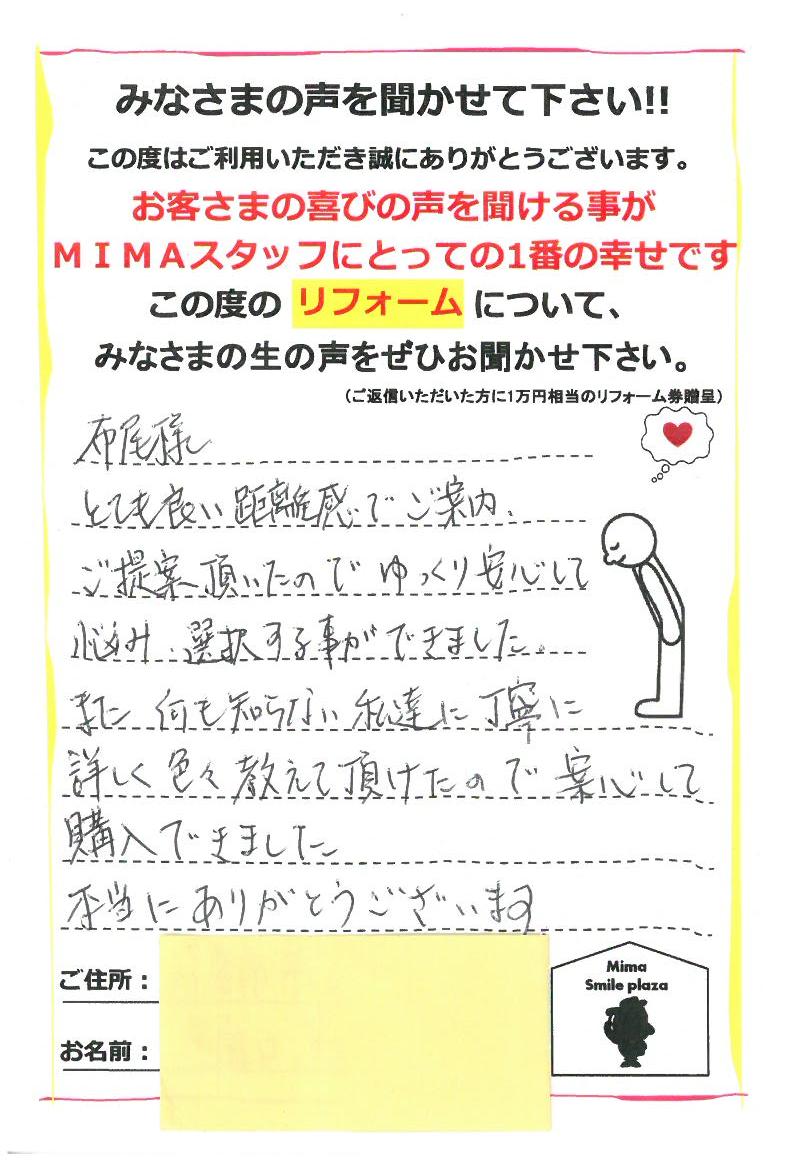 みなさまの声を聞かせて下さい!!
この度はご利用いただき誠にありがとうございます。
お客さまの喜びの声を聞ける事が
ＭＩＭＡスタッフにとっての1番の幸せです
この度の リフォーム について、
みなさまの生の声をぜひお聞かせ下さい。
（ご返信いただいた方に1万円相当のリフォーム券贈呈）
布尾様
とても良い距離感でご案内、
ご提案頂いたのでゆっくり安心して
悩み、選択する事ができました。
また何も知らない私達に丁寧に
詳しく色々教えて頂けたので案心して
購入できました
本当にありがとうございます
ご住所：
お名前：
Mima
Smile plaza